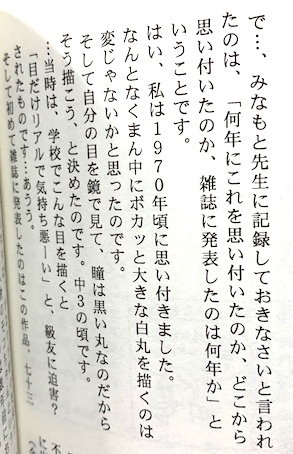 で…、みなもと先生に記録しておきなさいと言われ
たのは、「何年にこれを思い付いたのか、どこから
思い付いたのか、雑誌に発表したのは何年か」と
いうことです。
はい、私は1970年頃に思い付きました。
なんとなくまん中にボカッと大きな白丸を描くのは
変じゃないかと思ったのです。
そして自分の目を鏡で見て、瞳は黒い丸なのだから
そう描こう、と決めたのです。中3の頃です。
…当時は、学校でこんな目を描くと
「目だけリアルで気持ち悪ーい」と、級友に迫害?
されたものです…あうう。
そして初めて雑誌に発表したのはこの作品、七十三